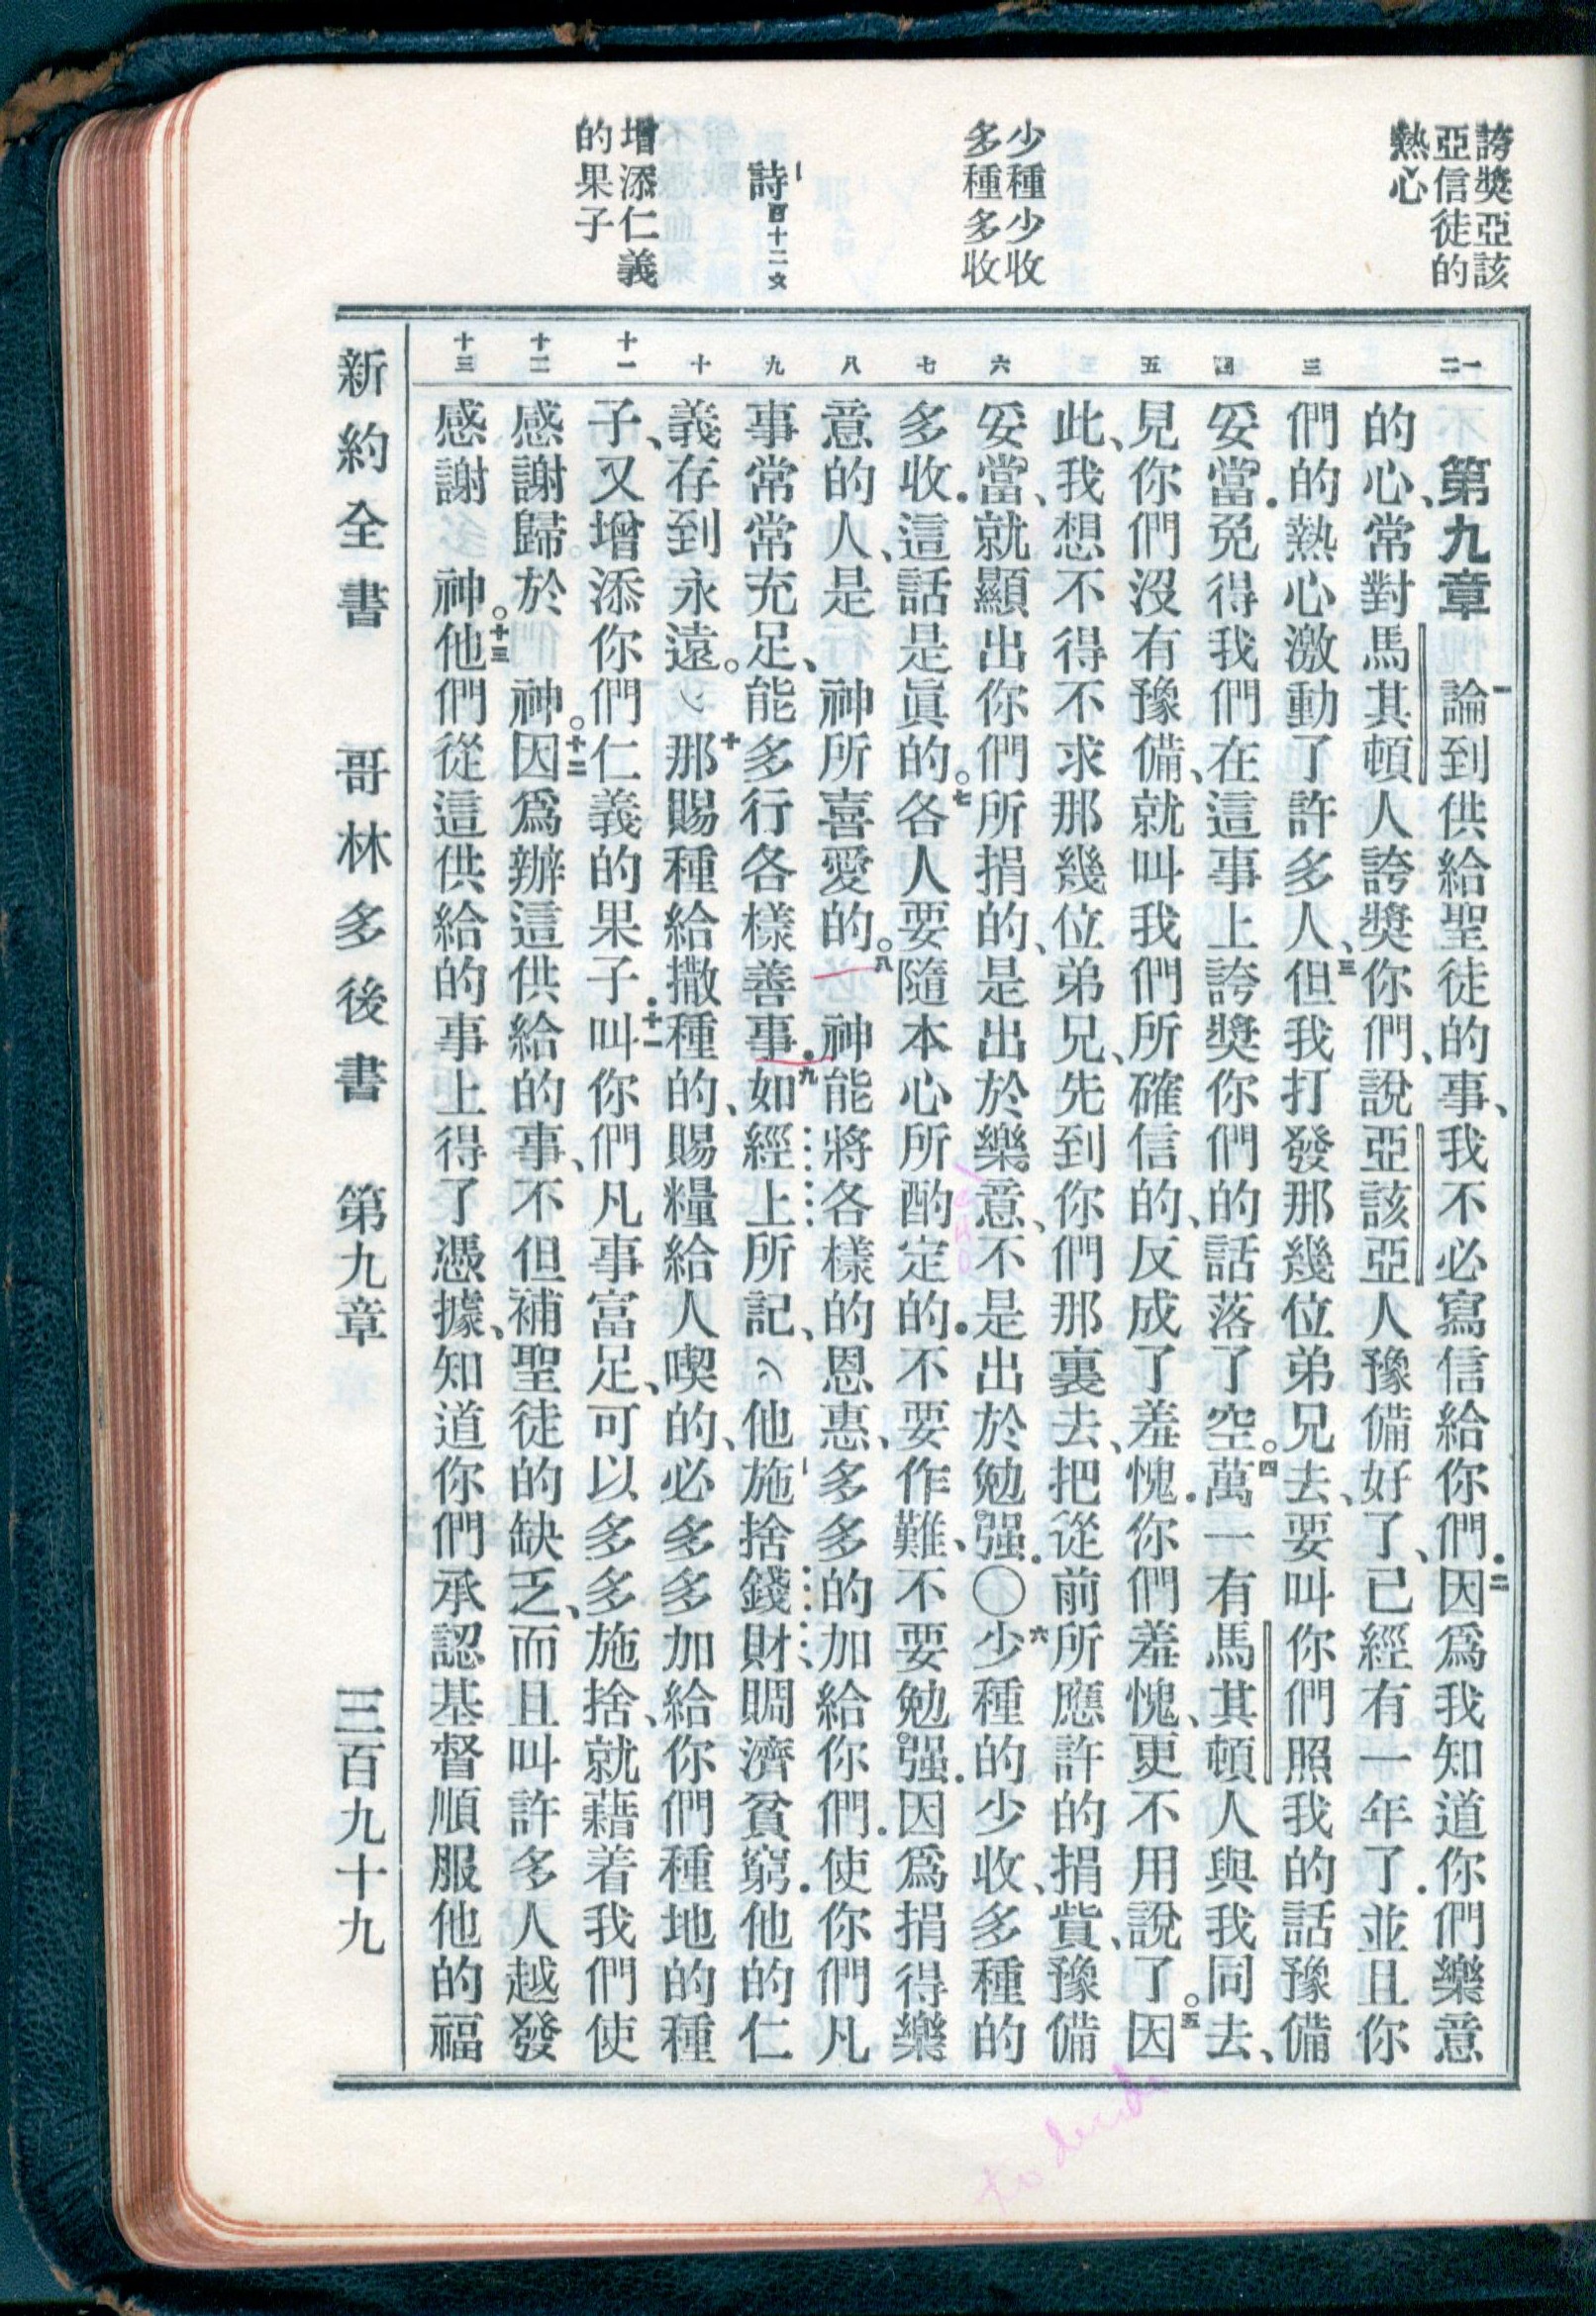 誇獎亞該
亞信徒的
熱心
少種少收
多種多收
詩百十二文
增添仁義
的果子
一二 三 四 五 六 七 八 九 十 十一 十二 十三
第九章 一論到供給聖徒的事、我不必寫信給你們．二因爲我知道你們樂意
的心、常對馬其頓人誇獎你們、說亞該亞人豫備好了、已經有一年了．並且你
們的熱心激動了許多人、三但我打發那幾位弟兄去、要叫你們照我的話豫備
妥當．免得我們在這事上誇獎你們的話落了空。四萬一有馬其頓人與我同去、
見你們沒有豫備、就叫我們所確信的、反成了羞愧．你們羞愧、更不用說了。五因
此、我想不得不求那幾位弟兄、先到你們那裏去、把從前所應許的捐貲、豫備
妥當、就顯出你們所捐的、是出於樂意、不是出於勉强．〇六少種的少收、多種的
多收．這話是眞的。七各人要隨本心所酌定的．不要作難、不要勉强．因爲捐得樂
意的人、是 神所喜愛的。八 神能將各樣的恩惠、多多的加給你們．使你們凡
事常常充足、能多行各樣善事．九如經上所記、他施捨錢財、賙濟貧窮．他的仁
義存到永遠。十那賜種給撒種的、賜糧給人喫的、必多多加給你們種地的種
子、又增添你們仁義的果子．十一叫你們凡事富足、可以多多施捨、就藉着我們使
感謝歸於 神。十二因爲辦這供給的事、不但補聖徒的缺乏、而且叫許多人越發
感謝 神。十三他們從這供給的事上得了憑據、知道你們承認基督順服他的福
新約全書 哥林多後書 第九章 三百九十九
to decide